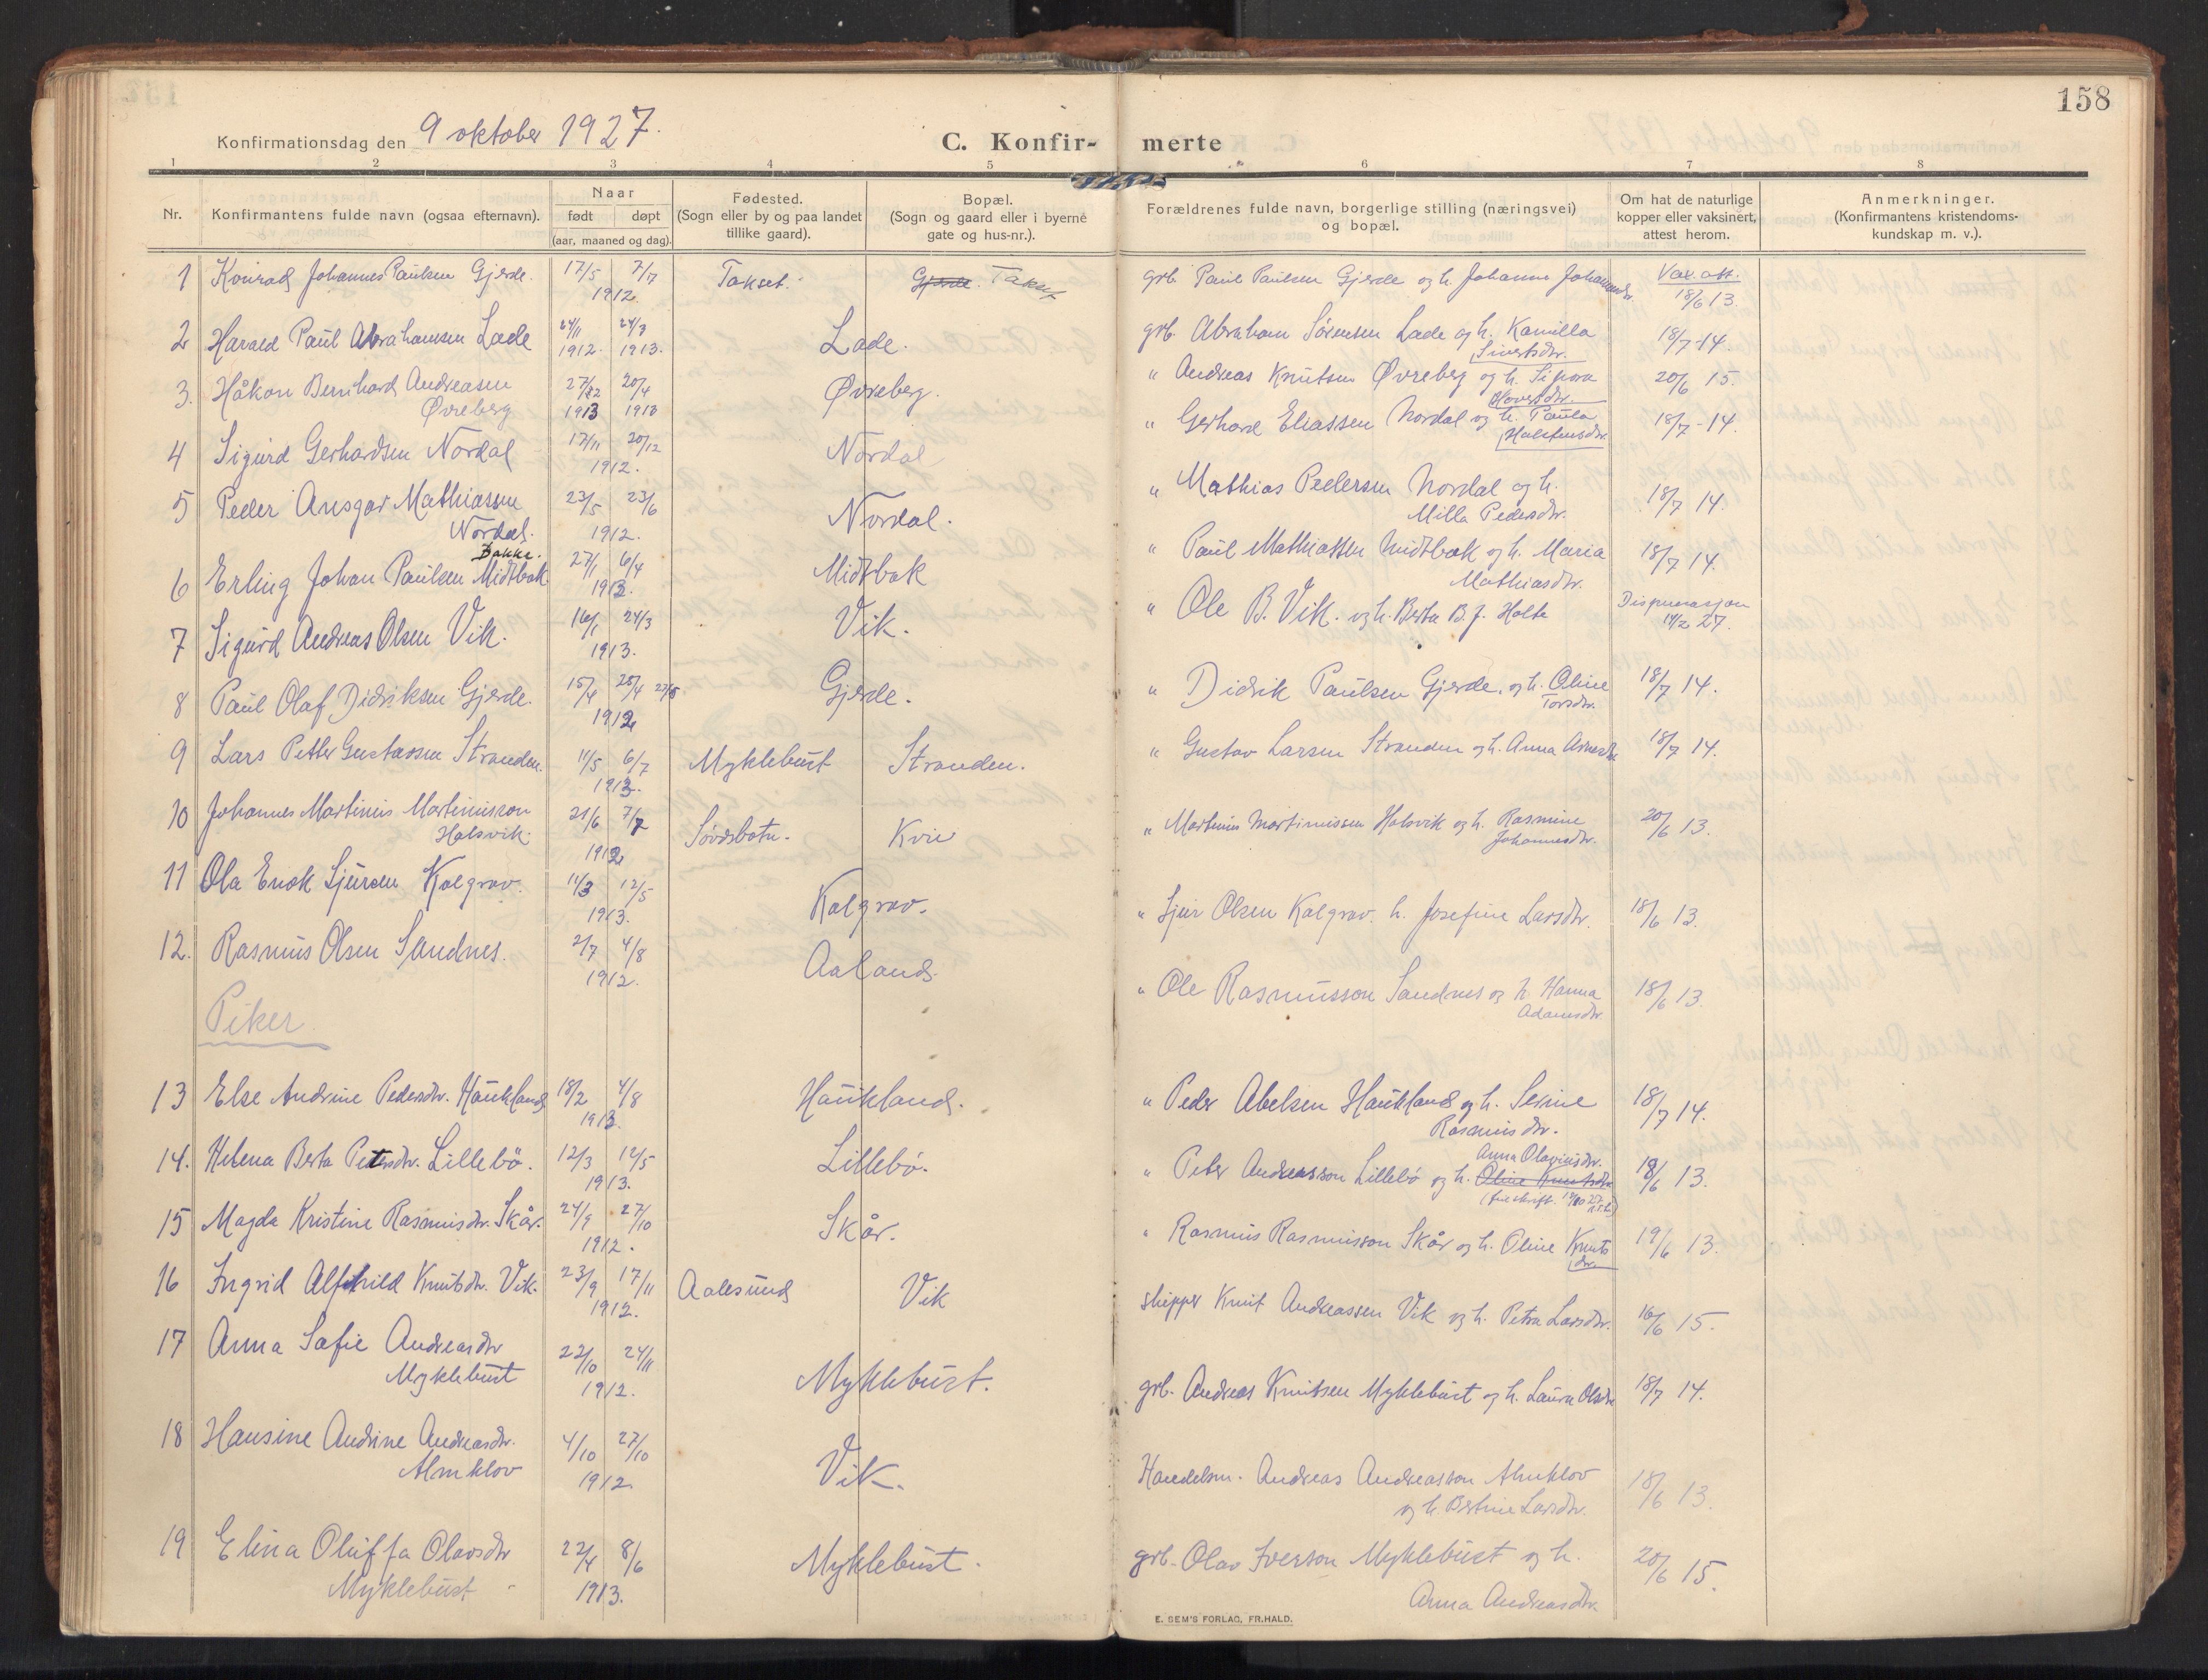 158
Konfirmationsdag den 9 oktober 1927.
C. Konfir- merte
1 2 3 4 5 6 7 8
Nr. Konfirmantens fulde navn (ogsaa efternavn). Naar født døpt (aar, maaned og dag). Fødested. (Sogn eller by og paa landet tillike gaard). Bopæl. (Sogn og gaard eller i byerne gate og hus-nr.). Forældrenes fulde navn, borgerlige stilling (næringsvei) og bopæl. Om hat de naturlige kopper eller vaksinert, attest herom. Anmerkninger. (Konfirmantens kristendoms-kundskap m. v.).
1 Konrad Johannes Paulsen Gjerde. 17/5 7/7 1912. Takset. Gjerde. Takset grb. Paul Paulsen Gjerde og h. Johanne Vax. att. 18/6 13.
2 Harald Paul Abrahamsen Lade 24/11 1912. 24/3 1913. Lade. grb. Abraham Sørensen Lade og h. Kamilla Sivertsdtr. 18/7 - 14.
3. Håkon Bernhard Andreasen Øvreberg 1913 20/4 1913 Øvreberg. " Andreas Knutsen Øvreberg og h. 20/6 15.
4 Sigurd Gerhardsen Nordal 17/11 20/12 1912. Nordal " Gerhard Eliassen Nordal og h. Paula 18/7 - 14.
5 Peder Ansgar Mathiassen Nordal. 23/5 23/6 1912. Nordal. " Mathias Pedersen Nordal og h. Milla Pedersdtr. 18/7 14.
6 Erling Johan Paulsen Midtbak. Bakke. 27/1 6/4 1913. Midtbak " Paul Mathiassen Midtbak og h. Maria Mathiasdtr. 18/7 14.
7 Sigurd Andreas Olsen Vik. 16/1 24/3 1913. Vik. " Ole B. Vik. og h. Berta B. J. Holte Dispensasjon 14/2 27.
8 Paul Olaf Didriksen Gjerde. 15/4 1912 Gjerde. " Didrik Paulsen Gjerde, og h. Oline Torsdtr. 18/7 14.
9 Lars Petter Gustavsen Stranden. 11/5 6/7 1913. Myklebust Stranden. " Gustav Larsen Stranden og h. Anna 18/7 14.
10 Johannes Martinus Martinusson Halsvik. 21/6 7/7 1912 Søvdsbotn. Kvie " Martinus Martinussen Halsvik og h. Rasmine Johannesdtr. 20/6 13.
11 Ola Enok Sjursen Kalgrav. 11/3 12/5 1913. Kalgrav. " Sjur Olsen Kalgrav. h. Josefine Larsdtr. 18/6 13.
12. Rasmus Olsen Sandnes. 2/7 4/8 1912. Aaland. " Ole Rasmusson Sandnes og h Hanna Adamsdtr. 18/6 13.
Piker
13 Else Andrine Pedersdtr. Haukland 18/2 4/8 1913. Haukland. " Peder Abelsen Haukland og h. Serine Rasmusdtr. 18/7 14.
14. Helena Berta Petersdtr. Lillebö. 12/3 12/5 1913. Lillebö. " Peter Andreasson Lillebö og h. Oline Knutsdtr. Anna Olavusdtr. 18/6 13.
15 Magda Kristine Rasmusdtr. Skår. 24/9 27/10 1912. Skår. " Rasmus Rasmusson Skår og h. Oline Knutsdtr. 19/6 13.
16 Ingrid Alfhild Knutsdtr. Vik. 23/9 17/11 1912. Aalesund Vik skipper Knut Andreassen Vik og h. Petra Larsdtr. 16/6 15.
17 Anna Sofie Andreasdtr Myklebust 22/10 24/11 1912. Myklebust. grb. Andreas Knutsen Myklebust og h. Laura Olsdtr 18/7 14.
18 Hansine Andrine Andreasdtr. Almklov 4/10 27/10 1912. Vik. Handelsm. Andreas Andreasson Almklov og h. Bertine Larsdtr. 18/6 13.
19 Elina Oluffa Olavsdtr Myklebust 22/4 8/6 1913. Myklebust. grb. Olav Iverson Myklebust og h. Anna Andreasdtr. 20/6 15.
E. SEM'S FORLAG, FR.HALD.